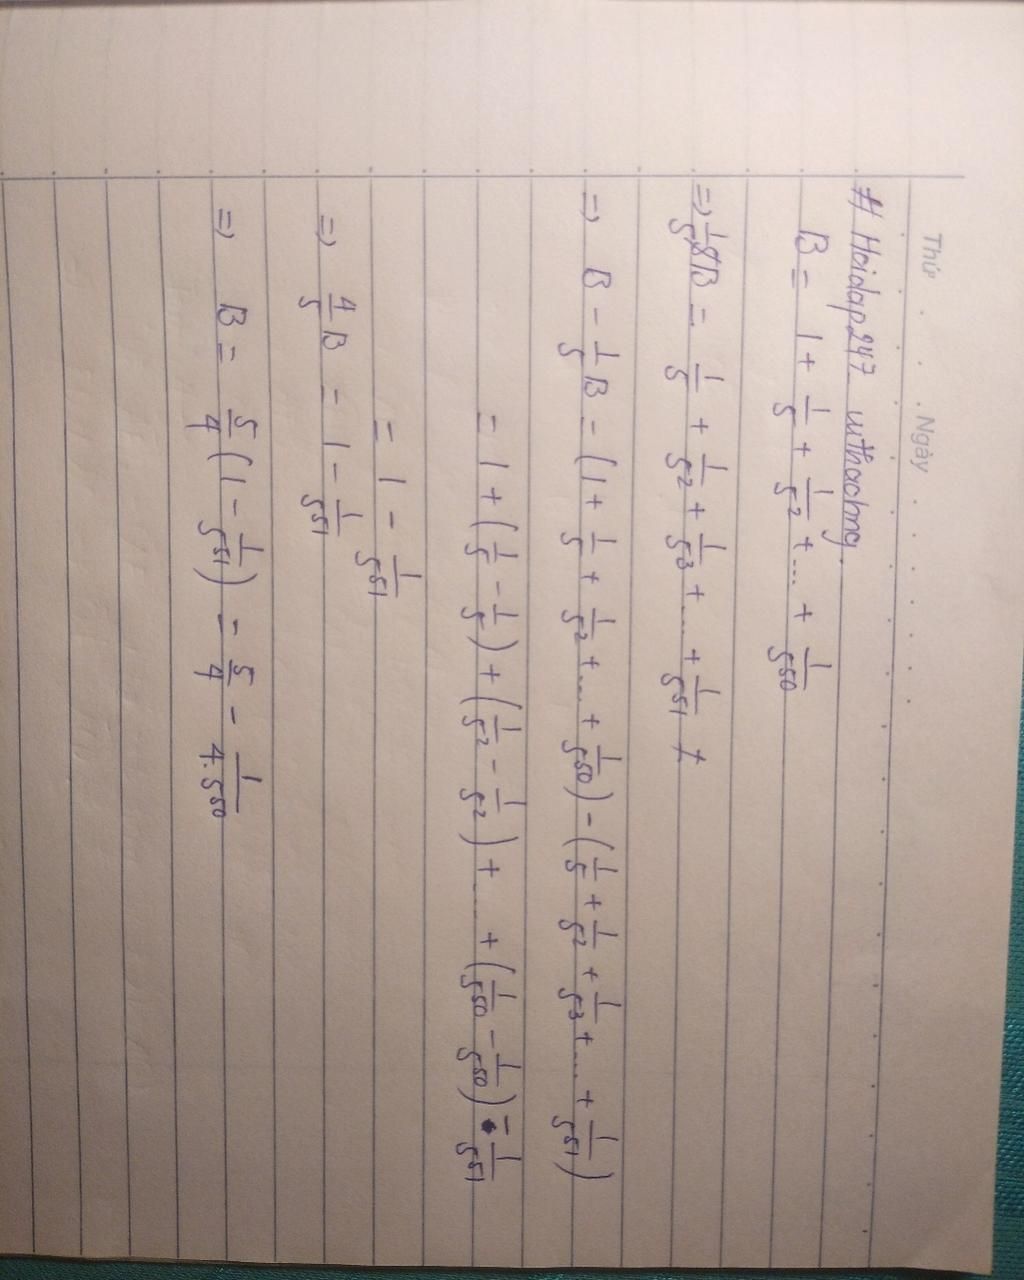 Thứ . . . . Ngày . . . . . .
# Hoidap247 
B = 1 + 1/5 + 1/5² + .... + 1/5⁵⁰
=> 1/5 B = 1/5 + 1/5² + 1/5³ + .... + 1/5⁵¹
=> B - 1/5 B = (1 + 1/5 + 1/5² + .... + 1/5⁵⁰) - (1/5 + 1/5² + 1/5³ + .... + 1/5⁵¹)
= 1 + (1/5 - 1/5) + (1/5² - 1/5²) + .... + (1/5⁵⁰ - 1/5⁵⁰) - 1/5⁵¹
= 1 - 1/5⁵¹
=> 4/5 B = 1 - 1/5⁵¹
=> B = 5/4 (1 - 1/5⁵¹) = 5/4 - 1/4.5⁵⁰